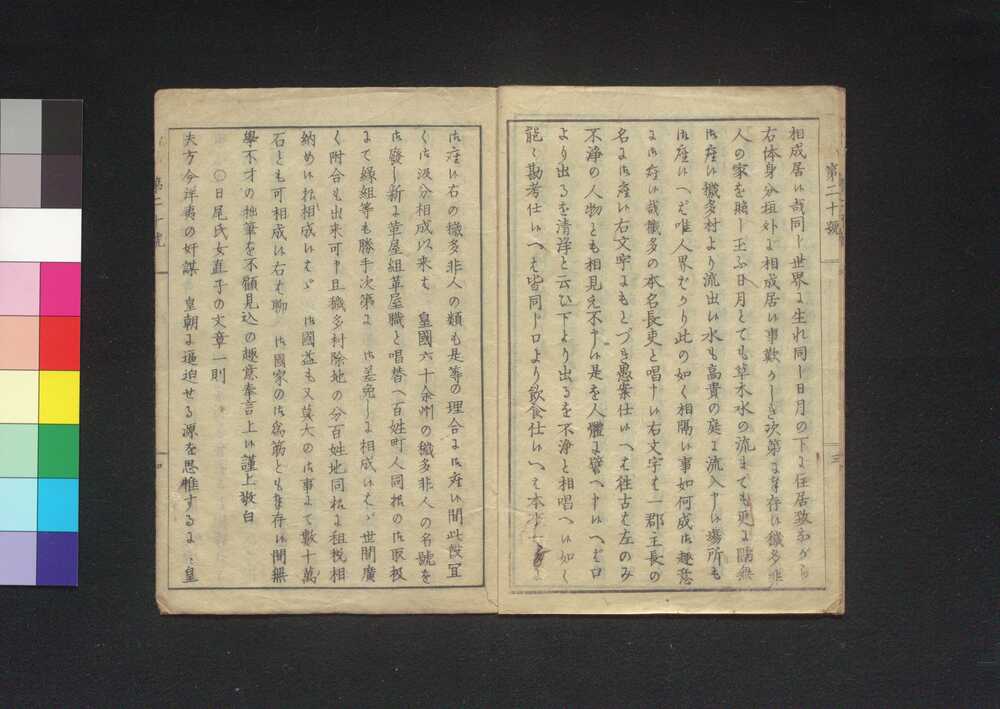 第二十號
三
相成居い哉同し世界に生れ同し日月の下に住居致なから
右体身分垣外に相成居い事歎かしき次第に奉存い穢多非
人の家を照し玉ふ日月とても草木水の流まても更に隔無
御座い穢多村より流出い水も高貴の庭に流入申い場所も
御座いへは唯人界はかり此の如く相隔い事如何成御趣意
に御座い哉穢多の本名長吏と唱申い右文字も一郡主長の
名に御座い右文字にもとつき愚案仕いへは往古は左のみ
不浄の人物とも相見え不申い是を人體に譬へ申いへは口
より出るを清浄と云ひ下より出るを不浄と相唱へい如く
能々勘考仕いへは皆同し口より飲食仕いへは本
御座い右の穢多非人の類も是等の理合に御座い間此段宜
く御汲分相成以来も 皇國六十余州の穢多非人の名號を
御廢し新に革屋組革屋職と唱替へ百姓町人同様の御取扱
にて縁組等も勝手次第に 御差免しに相成いはゝ世間廣
く附合も出来可申且穢多村除地の分百姓地同様に租税相
納めい様相成いはゝ 御國益も又莫大の御事にて數十萬
石とも可相成い右は聊 御國家の御為筋とも奉存い間無
學不才の拙筆を不顧見込の趣意奉言上い謹上敬白
○日尾氏女直子の文章一則
夫方今洋夷の奸謀 皇朝に逼迫せる源を思惟するに 皇
第二十號
四